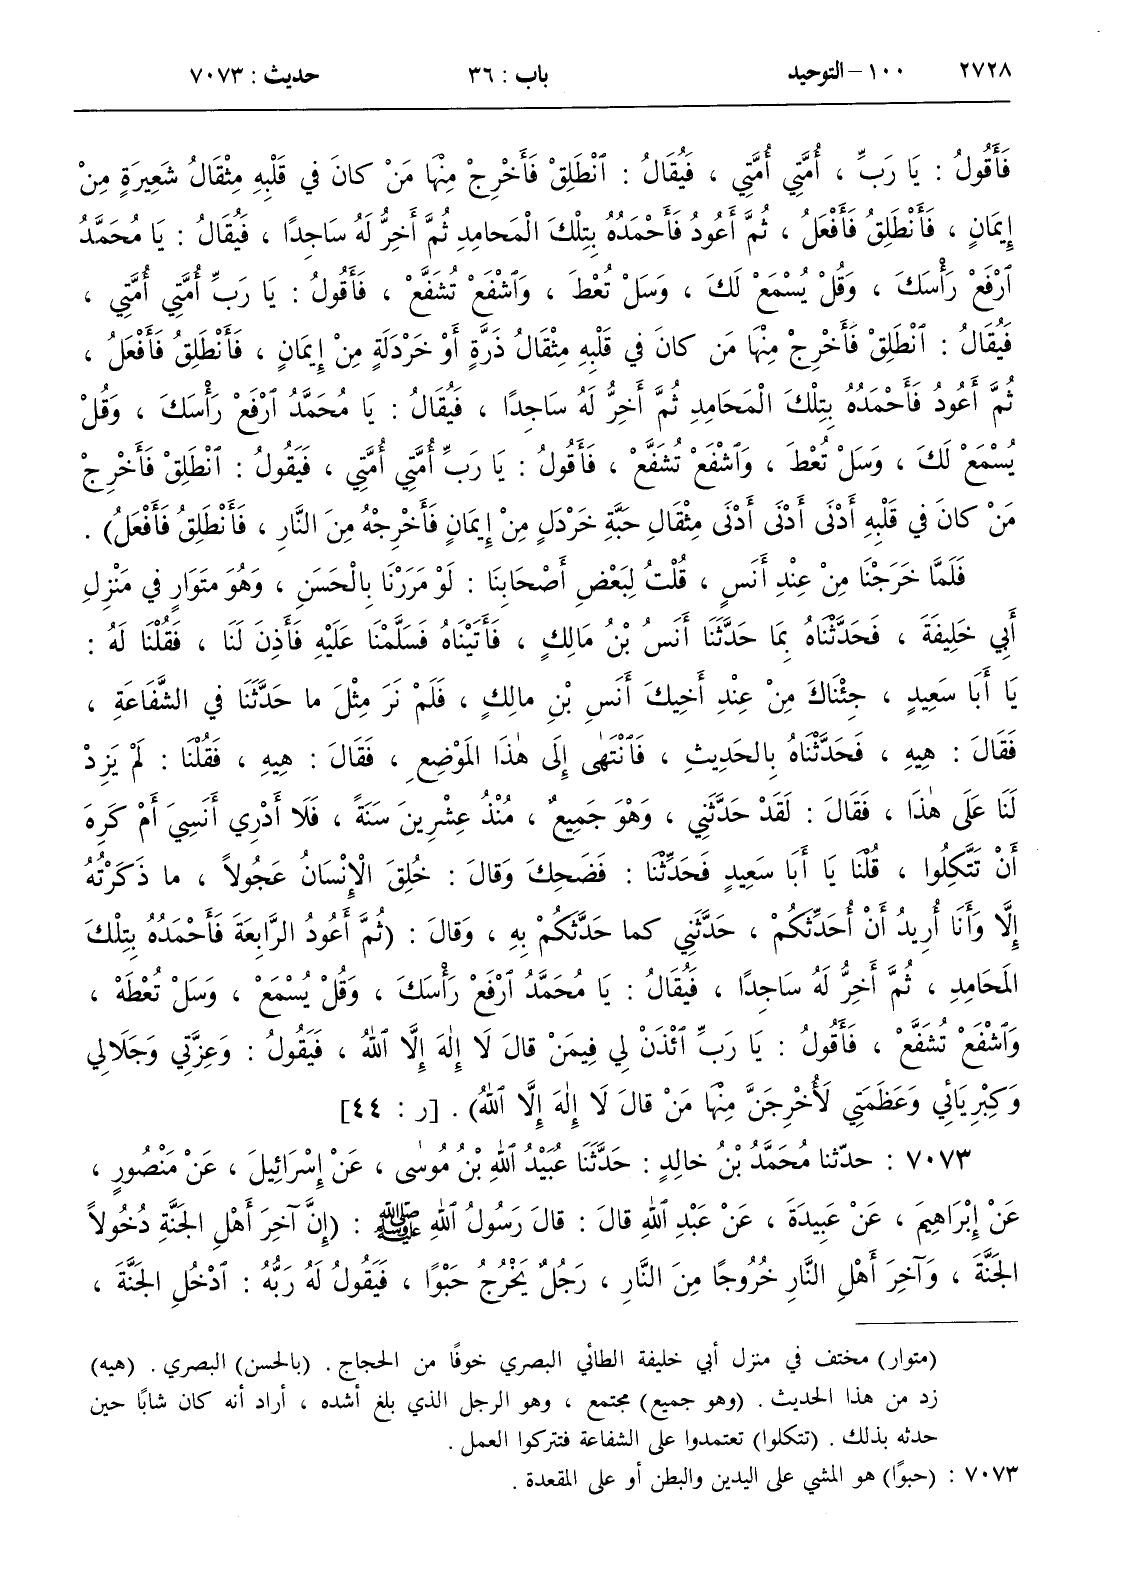 ٢٧٢٨ ١٠٠ – التوحيد باب : ٣٦ حديث : ٧٠٧٣
فَأَقُولُ : يَا رَبِّ ، أُمَّتِي أُمَّتِي ، فَيُقَالُ : ٱنْطَلِقْ فَأَخْرِجْ مِنْهَا مَنْ كانَ في قَلْبِهِ مِثْقَالُ شَعِيرَةٍ مِنْ
إِيمَانٍ ، فَأَنْطَلِقُ فَأَفْعَلُ ، ثُمَّ أَعُودُ فَأَحْمَدُهُ بِتِلْكَ الْمَحامِدِ ثُمَّ أَخِرُّ لَهُ ساجِدًا ، فَيُقَالُ : يَا مُحَمَّدُ
ٱرْفَعْ رَأْسَكَ ، وَقُلْ يُسْمَعْ لَكَ ، وَسَلْ تُعْطَ ، وَٱشْفَعْ تُشَفَّعْ ، فَأَقُولُ : يَا رَبِّ أُمَّتِي أُمَّتِي ،
فَيُقَالُ : ٱنْطَلِقْ فَأَخْرِجْ مِنْهَا مَن كانَ في قَلْبِهِ مِثْقَالُ ذَرَّةٍ أَوْ خَرْدَلَةٍ مِنْ إِيمَانٍ ، فَأَنْطَلِقُ فَأَفْعَلُ ،
ثُمَّ أَعُودُ فَأَحْمَدُهُ بِتِلْكَ الْمَحَامِدِ ثُمَّ أَخِرُّ لَهُ سَاجِدًا ، فَيُقَالُ : يَا مُحَمَّدُ ٱرْفَعْ رَأْسَكَ ، وَقُلْ
يُسْمَعْ لَكَ ، وَسَلْ تُعْطَ ، وَٱشْفَعْ تُشَفَّعْ ، فَأَقُولُ : يَا رَبِّ أُمَّتِي أُمَّتِي ، فَيَقُولُ : ٱنْطَلِقْ فَأَخْرِجْ
مَنْ كانَ في قَلْبِهِ أَدْنَى أَدْنَى أَدْنَى مِثْقَالِ حَبَّةِ خَرْدَلٍ مِنْ إِيمَانٍ فَأَخْرِجْهُ مِنَ النَّارِ ، فَأَنْطَلِقُ فَأَفْعَلُ) .
فَلَمَّا خَرَجْنَا مِنْ عِنْدِ أَنَسٍ ، قُلْتُ لِبَعْضِ أَصْحَابِنَا : لَوْ مَرَرْنَا بِالْحَسَنِ ، وَهُوَ مَتَوَارٍ في مَنْزِلِ
أَبِي خَلِيفَةَ ، فَحَدَّثْنَاهُ بِمَا حَدَّثَنَا أَنَسُ بْنُ مَالِكٍ ، فَأَتَيْنَاهُ فَسَلَّمْنَا عَلَيْهِ فَأَذِنَ لَنَا ، فَقُلْنَا لَهُ :
يَا أَبَا سَعِيدٍ ، جِئْنَاكَ مِنْ عِنْدِ أَخِيكَ أَنَسِ بْنِ مالِكٍ ، فَلَمْ نَرَ مِثْلَ ما حَدَّثَنَا في الشَّفَاعَةِ ،
فَقَالَ : هِيهِ ، فَحَدَّثْنَاهُ بِالحَدِيثِ ، فَٱنْتَهَى إِلَى هٰذَا المَوْضِعِ ، فَقَالَ : هِيهِ ، فَقُلْنَا : لَمْ يَزِدْ
لَنَا عَلَى هٰذَا ، فَقَالَ : لَقَدْ حَدَّثَنِي ، وَهْوَ جَمِيعٌ ، مُنْذُ عِشْرِينَ سَنَةً ، فَلَا أَدْرِي أَنَسِيَ أَمْ كَرِهَ
أَنْ تَتَّكِلُوا ، قُلْنَا يَا أَبَا سَعِيدٍ فَحَدِّثْنَا : فَضَحِكَ وَقالَ : خُلِقَ الْإِنْسَانُ عَجُولاً ، ما ذَكَرْتُهُ
إِلَّا وَأَنَا أُرِيدُ أَنْ أُحَدِّثَكُمْ ، حَدَّثَنِي كما حَدَّثَكُمْ بِهِ ، وَقالَ : (ثُمَّ أَعُودُ الرَّابِعَةَ فَأَحْمَدُهُ بِتِلْكَ
المَحَامِدِ ، ثُمَّ أَخِرُّ لَهُ سَاجِدًا ، فَيُقَالُ : يَا مُحَمَّدُ ٱرْفَعْ رَأْسَكَ ، وَقُلْ يُسْمَعْ ، وَسَلْ تُعْطَهْ ،
وَٱشْفَعْ تُشَفَّعْ ، فَأَقُولُ : يَا رَبِّ ٱئْذَنْ لِي فِيمَنْ قالَ لَا إِلٰهَ إِلَّا ٱللهُ ، فَيَقُولُ : وَعِزَّتِي وَجَلَالِي
وَكِبْرِيَائِي وَعَظَمَتِي لَأُخْرِجَنَّ مِنْهَا مَنْ قالَ لَا إِلٰهَ إِلَّا ٱللهُ) . [ر : ٤٤]
٧٠٧٣ : حدّثنا مُحَمَّدُ بْنُ خالِدٍ : حَدَّثَنَا عُبَيْدُ ٱللهِ بْنُ مُوسٰى ، عَنْ إِسْرَائِيلَ ، عَنْ مَنْصُورٍ ،
عَنْ إِبْرَاهِيمَ ، عَنْ عَبِيدَةَ ، عَنْ عَبْدِ ٱللهِ قالَ : قالَ رَسُولُ ٱللهِ ﷺ : (إِنَّ آخِرَ أَهْلِ الجَنَّةِ دُخُولاً
الجَنَّةَ ، وَآخِرَ أَهْلِ النَّارِ خُرُوجًا مِنَ النَّارِ ، رَجُلٌ يَخْرُجُ حَبْوًا ، فَيَقُولُ لَهُ رَبُّهُ : ٱدْخُلِ الجَنَّةَ ،
(متوار) مختف في منزل أبي خليفة الطائي البصري خوفًا من الحجاج . (بالحسن) البصري . (هيه)
زد من هذا الحديث . (وهو جميع) مجتمع ، وهو الرجل الذي بلغ أشده ، أراد أنه كان شابًا حين
حدثه بذلك . (تتكلوا) تعتمدوا على الشفاعة فتتركوا العمل .
٧٠٧٣ : (حبوًا) هو المشي على اليدين والبطن أو على المقعدة .